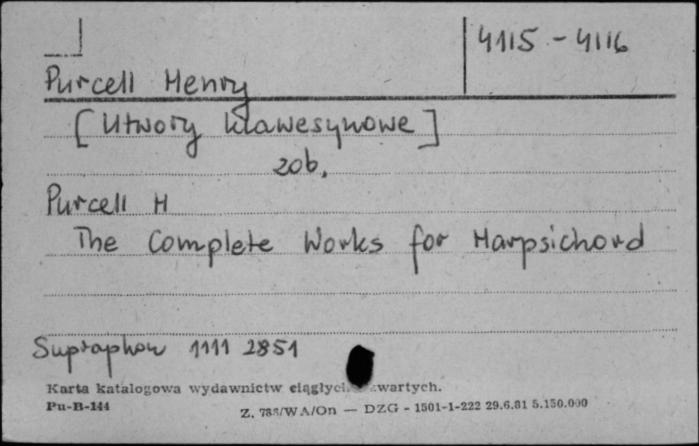 4115 - 4116
Purcell Henry
[Utwory klawesynowe]
zob.
Purcell H
The Complete Works for Harpsichord
Supraphon 1111 2851
Karta katalogowa wydawnictw
Pu-B-144
DZG - 1501-1-222 29.6.81 5.150.000